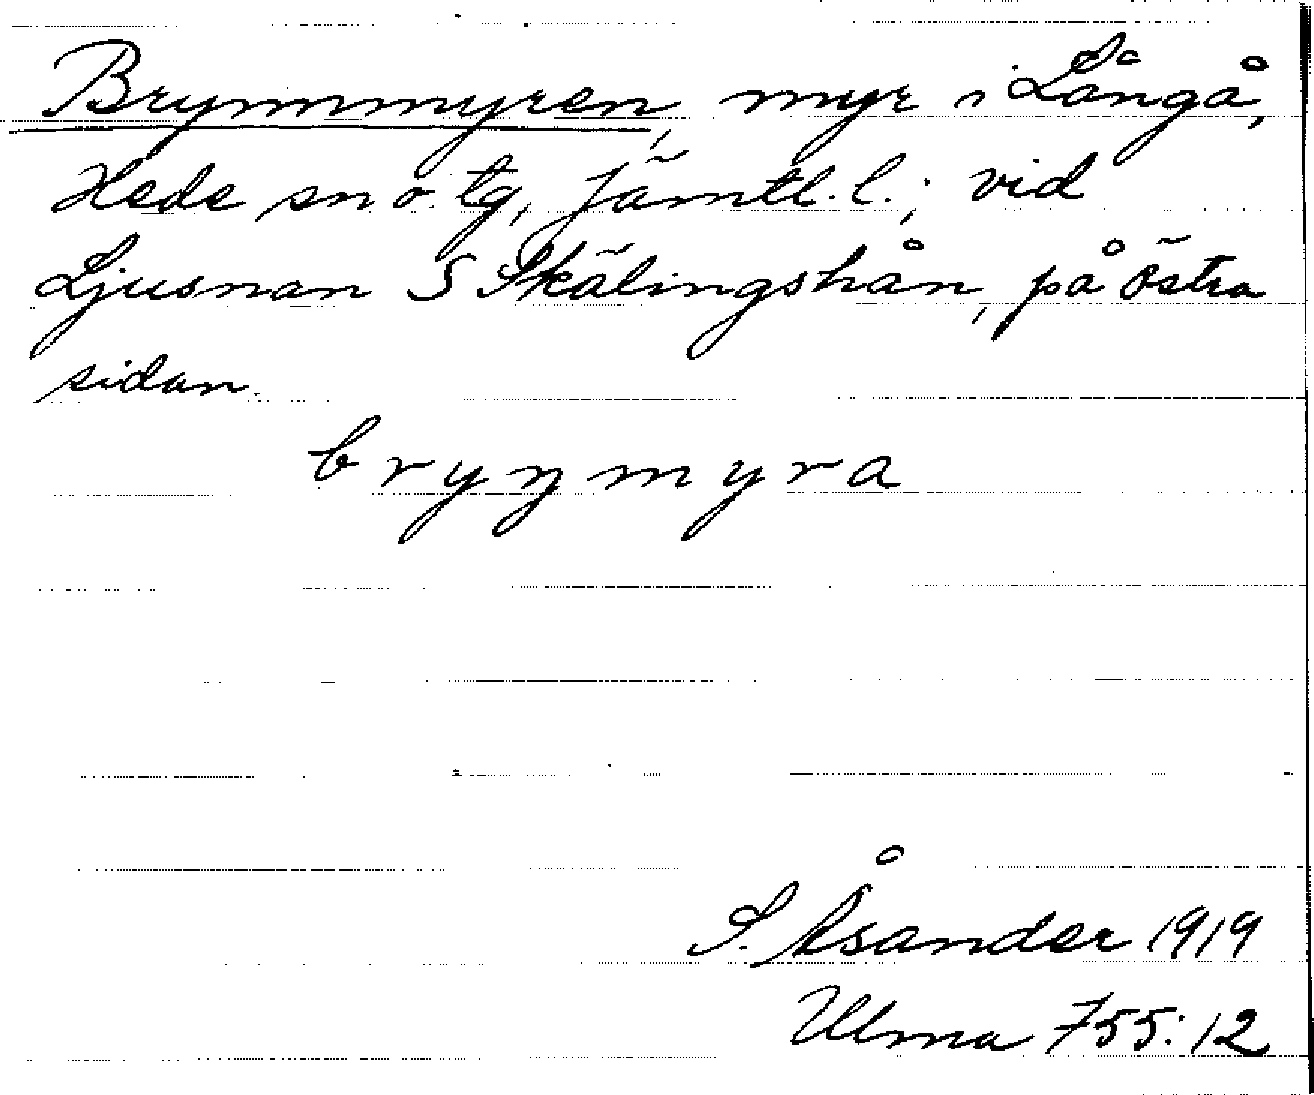 Brymmyren, myr i Långå,
Hede sn o. tg, Jämtl. l.; vid
Ljusnan S Skälingshån, på östra
sidan.
bryṃmyra
S. Åsander 1919
Ulma 755:12